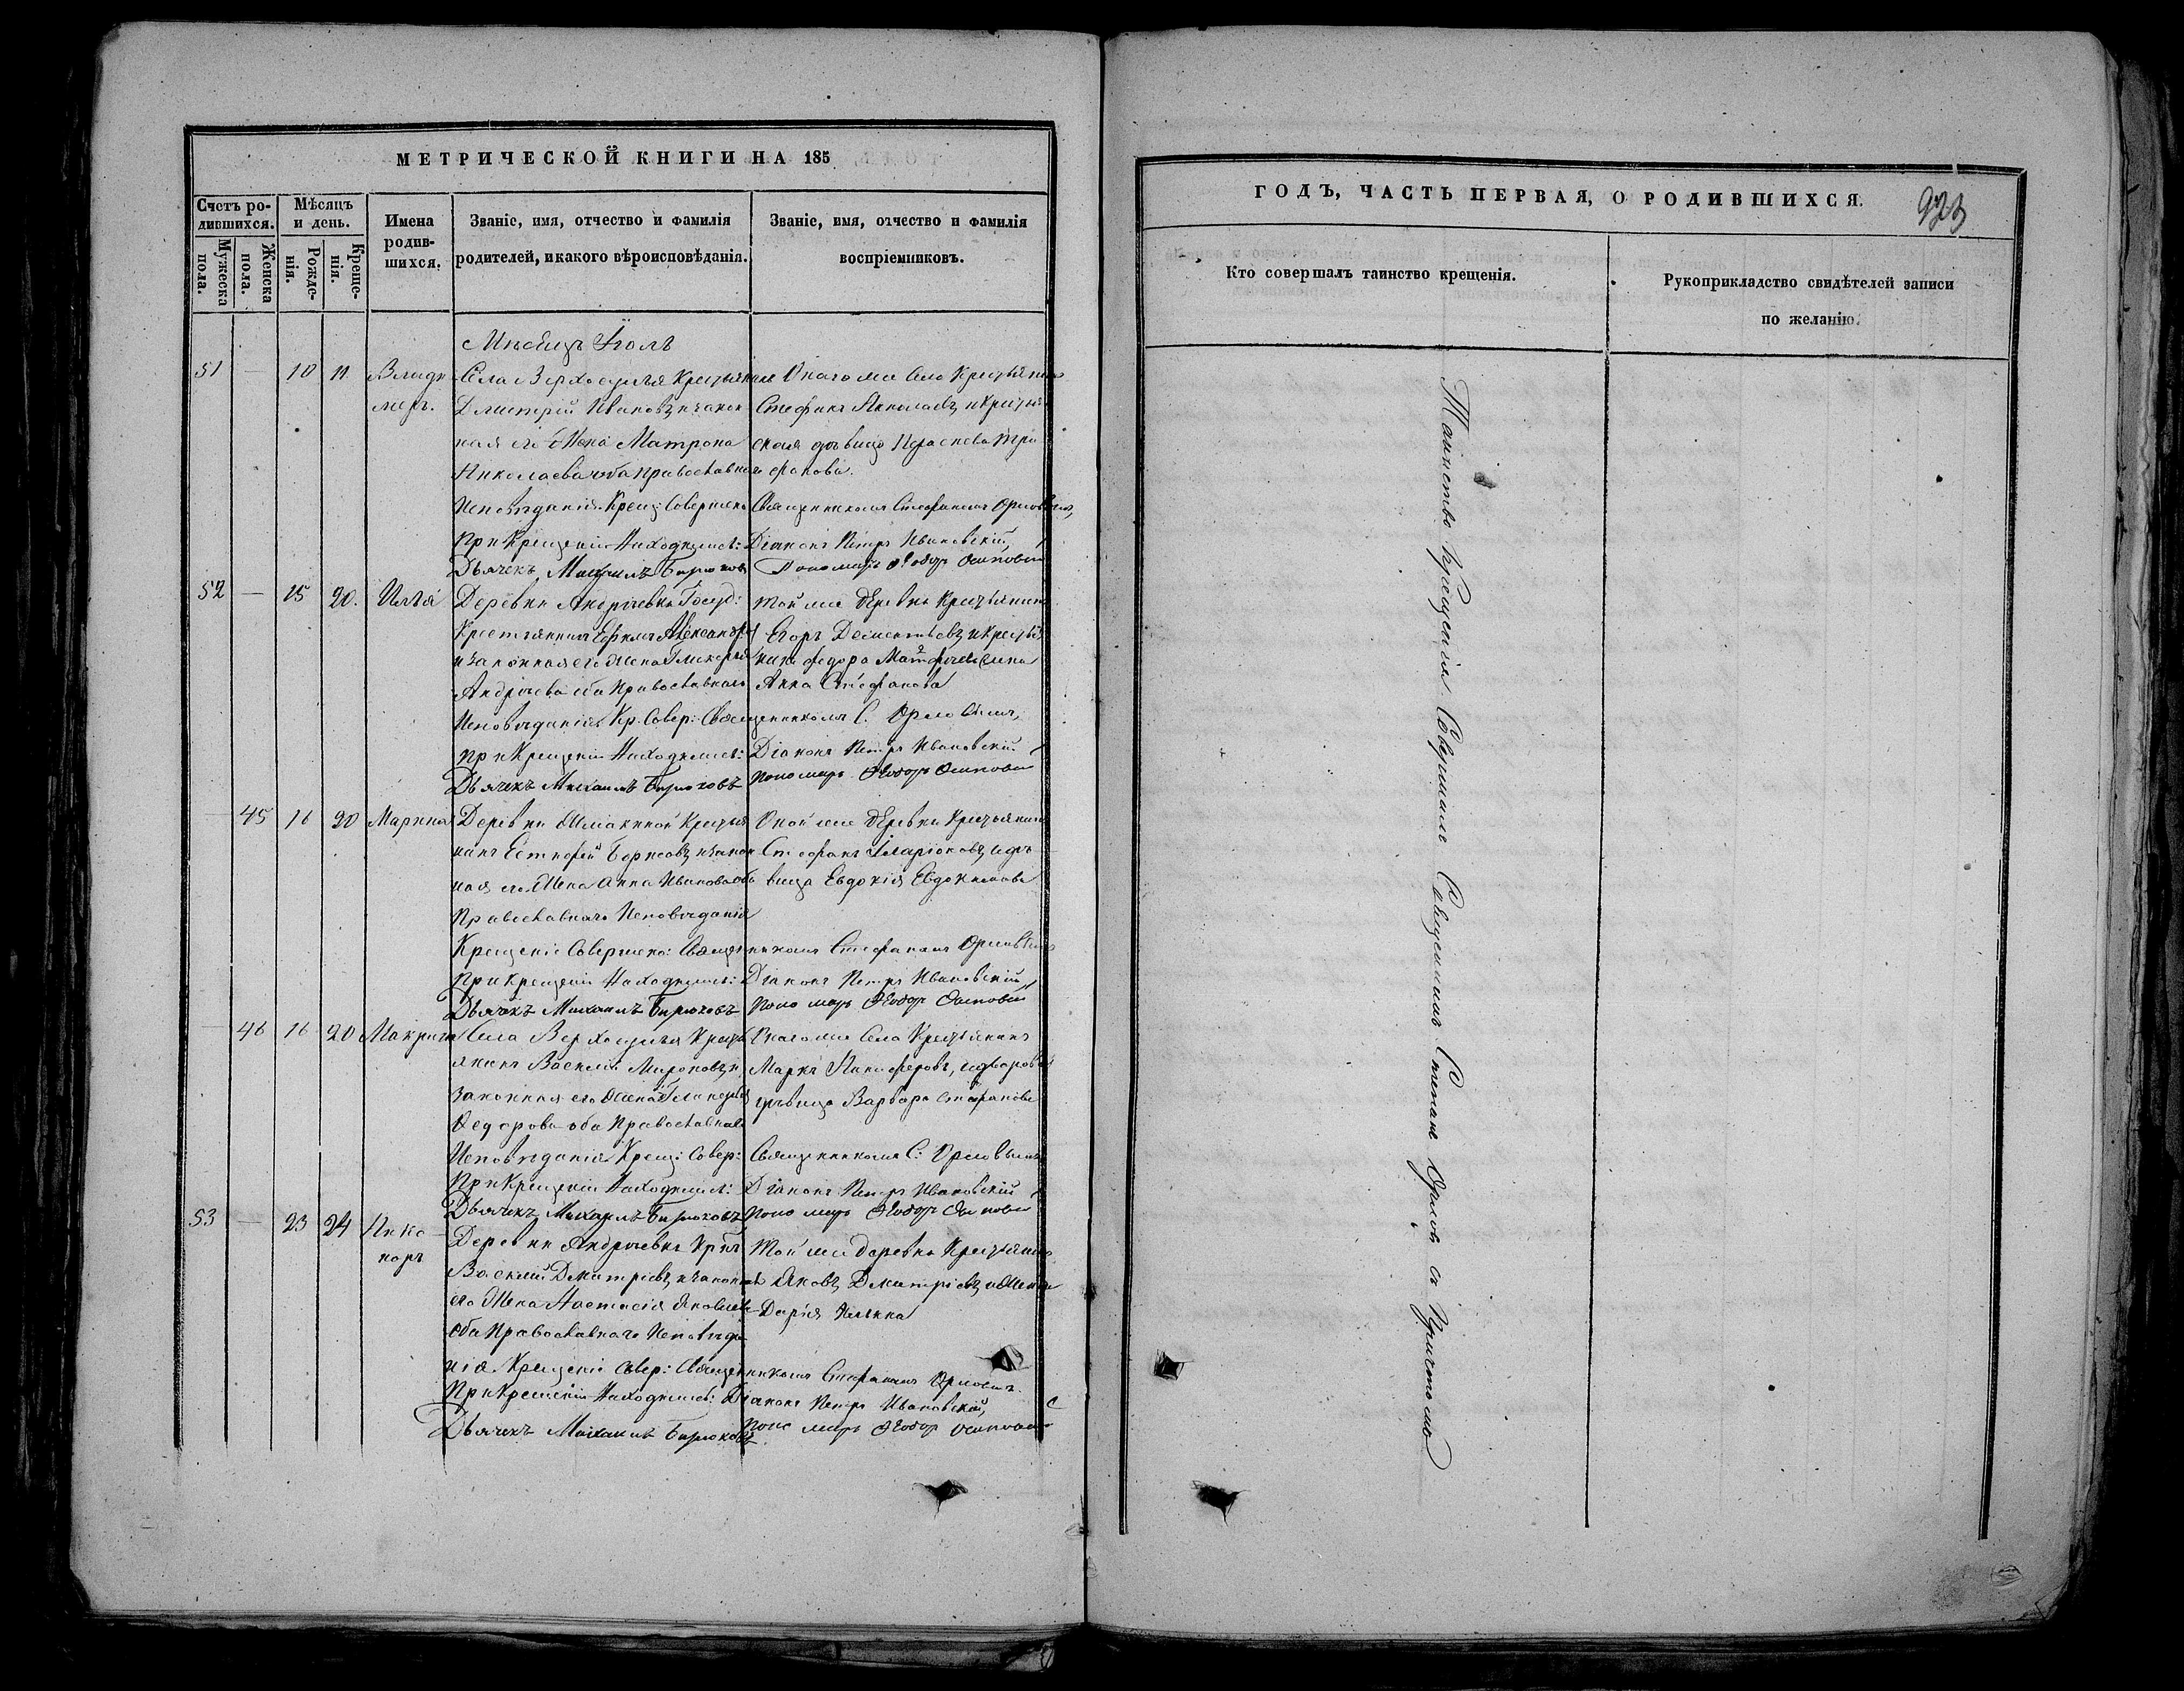 МЕТРИЧЕСКОЙ КНИГИ НА 185
Счетъ ро-
дившихся.
Мѣсяцъ
и день.
Мужеска
пола.
Женска
пола.
Рожде-
нія.
Креще-
нія.
Имена
родив-
шихся.
Званіе, имя, отчество и фамилія
родителей, и какого вѣроисповѣданія.
Званіе, имя, отчество и фамилія
воспріемниковъ.
Мѣсяцъ Іюль
51 — 10 11 Влади
меръ.
Села Верхосулья Крестьянинъ
Дмитрій Ивановъ, и закон
ная его Жена Матрона
Николаева оба Православнаго
Исповѣданія. Крещ: Совершено
При Крещеніи Находились:
Дьячекъ Михаилъ Бирюковъ
Онаго же Села Крестьянинъ
Стефанъ Николаевъ, и Крестья
ская дѣвица Параскева Три
фанова.
Священникомъ Стефаномъ Орловымъ,
Діаконъ Петръ Ивановскій,
Пономарь Ѳеодоръ Осиповъ
52 — 15 20. Илья
Деревни Андреевки Госуд:
Крестьянинъ Ефимъ Александровъ
и законная его Жена Гликерія
Андреева оба Православнаго
Исповѣданія. Кр. Совер: Священникомъ С. Орловымъ,
При Крещеніи Находились:
Дьячекъ Михаилъ Бирюковъ
Той же деревни Крестьянинъ
Егоръ Дементьевъ, и Крестья
нина Федора Матфеева Жена
Анна Стефанова
Діаконъ Петръ Ивановскій
Пономарь Ѳеодоръ Осиповъ
— 45 16 20 Марина
Деревни Крестья
нинъ Борисовъ, и закон
ная его Жена Анна Иванова оба
Православнаго Исповѣданія
Крещеніе Совершено: Священникомъ Стефаномъ Орловымъ
При Крещеніи Находились:
Дьячекъ Михаилъ Бирюковъ
Оной же деревни Крестьянинъ
Стефанъ Иларіоновъ, и дѣ
вица Евдокія Евдокимова
Діаконъ Петръ Ивановскій
Пономарь Ѳеодоръ Осиповъ
— 46 16 20 Макрина
Села Верхосулья Кресть
янинъ Василій Мироновъ, и
законная его Жена Гликерія
Ѳедорова оба Православнаго
Исповѣданія. Крещ: Совер:
При Крещеніи Находились:
Дьячекъ Михаилъ Бирюковъ
Онаго же Села Крестьянинъ
Маркъ Никифоровъ,
дѣвица Варвара Стефанова
Священникомъ С: Орловымъ
Діаконъ Петръ Ивановскій
Пономарь Ѳеодоръ Осиповъ
53 — 23 24 Ника
норъ
Деревни Андреевки
Василій Дмитріевъ, и законная
его Жена Настасія Яковлева
Оба Православнаго Исповѣда
нія. Крещеніе Совер: Священникомъ Стефаномъ Орловымъ.
При Крещеніи Находились:
Дьячекъ Михаилъ Бирюковъ
Той же деревни Крестьянинъ
Яковъ Дмитріевъ, и Жена
Дарія Ильина
Діаконъ Петръ Ивановскій,
Пономарь Ѳеодоръ Осиповъ
ГОДЪ, ЧАСТЬ ПЕРВАЯ, О РОДИВШИХСЯ.
923
Кто совершалъ таинство крещенія.
Рукоприкладство свидѣтелей записи
по желанію.
Таинство Крещенія Совершалъ Священникъ Стефанъ Орловъ съ Причтомъ